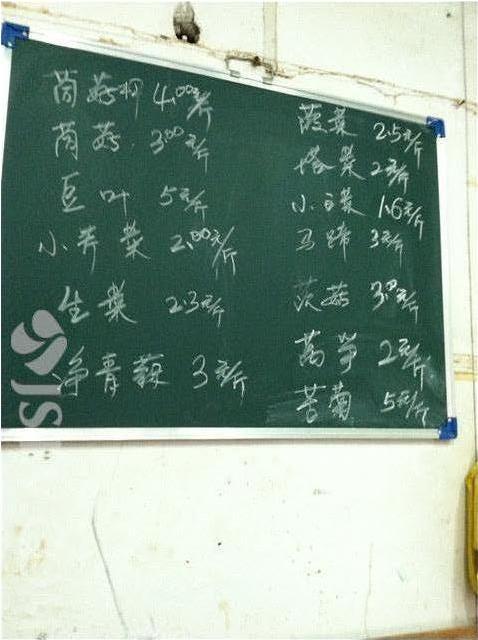 茼菇 4.00元/斤
茼菇 3.00元/斤
豆叶 5元/斤
小荠菜 2.00元/斤
生菜 2.3元/斤
净青蒜 3元/斤
菠菜 2.5元/斤
塔菜 2元/斤
小白菜 1.6元/斤
马蹄 3元/斤
茨菇 3.00元/斤
莴笋 2元/斤
苦菊 5元/斤